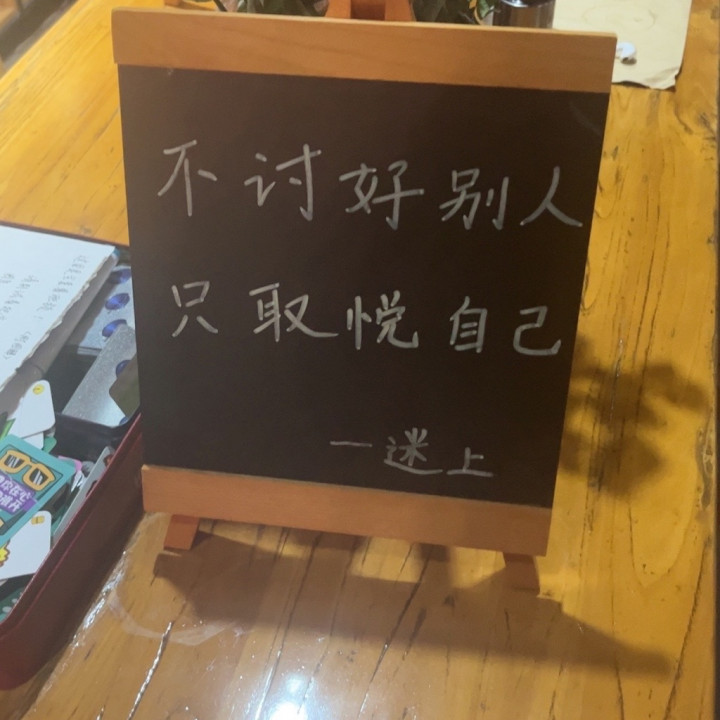 不讨好别人
只取悦自己
一迷上